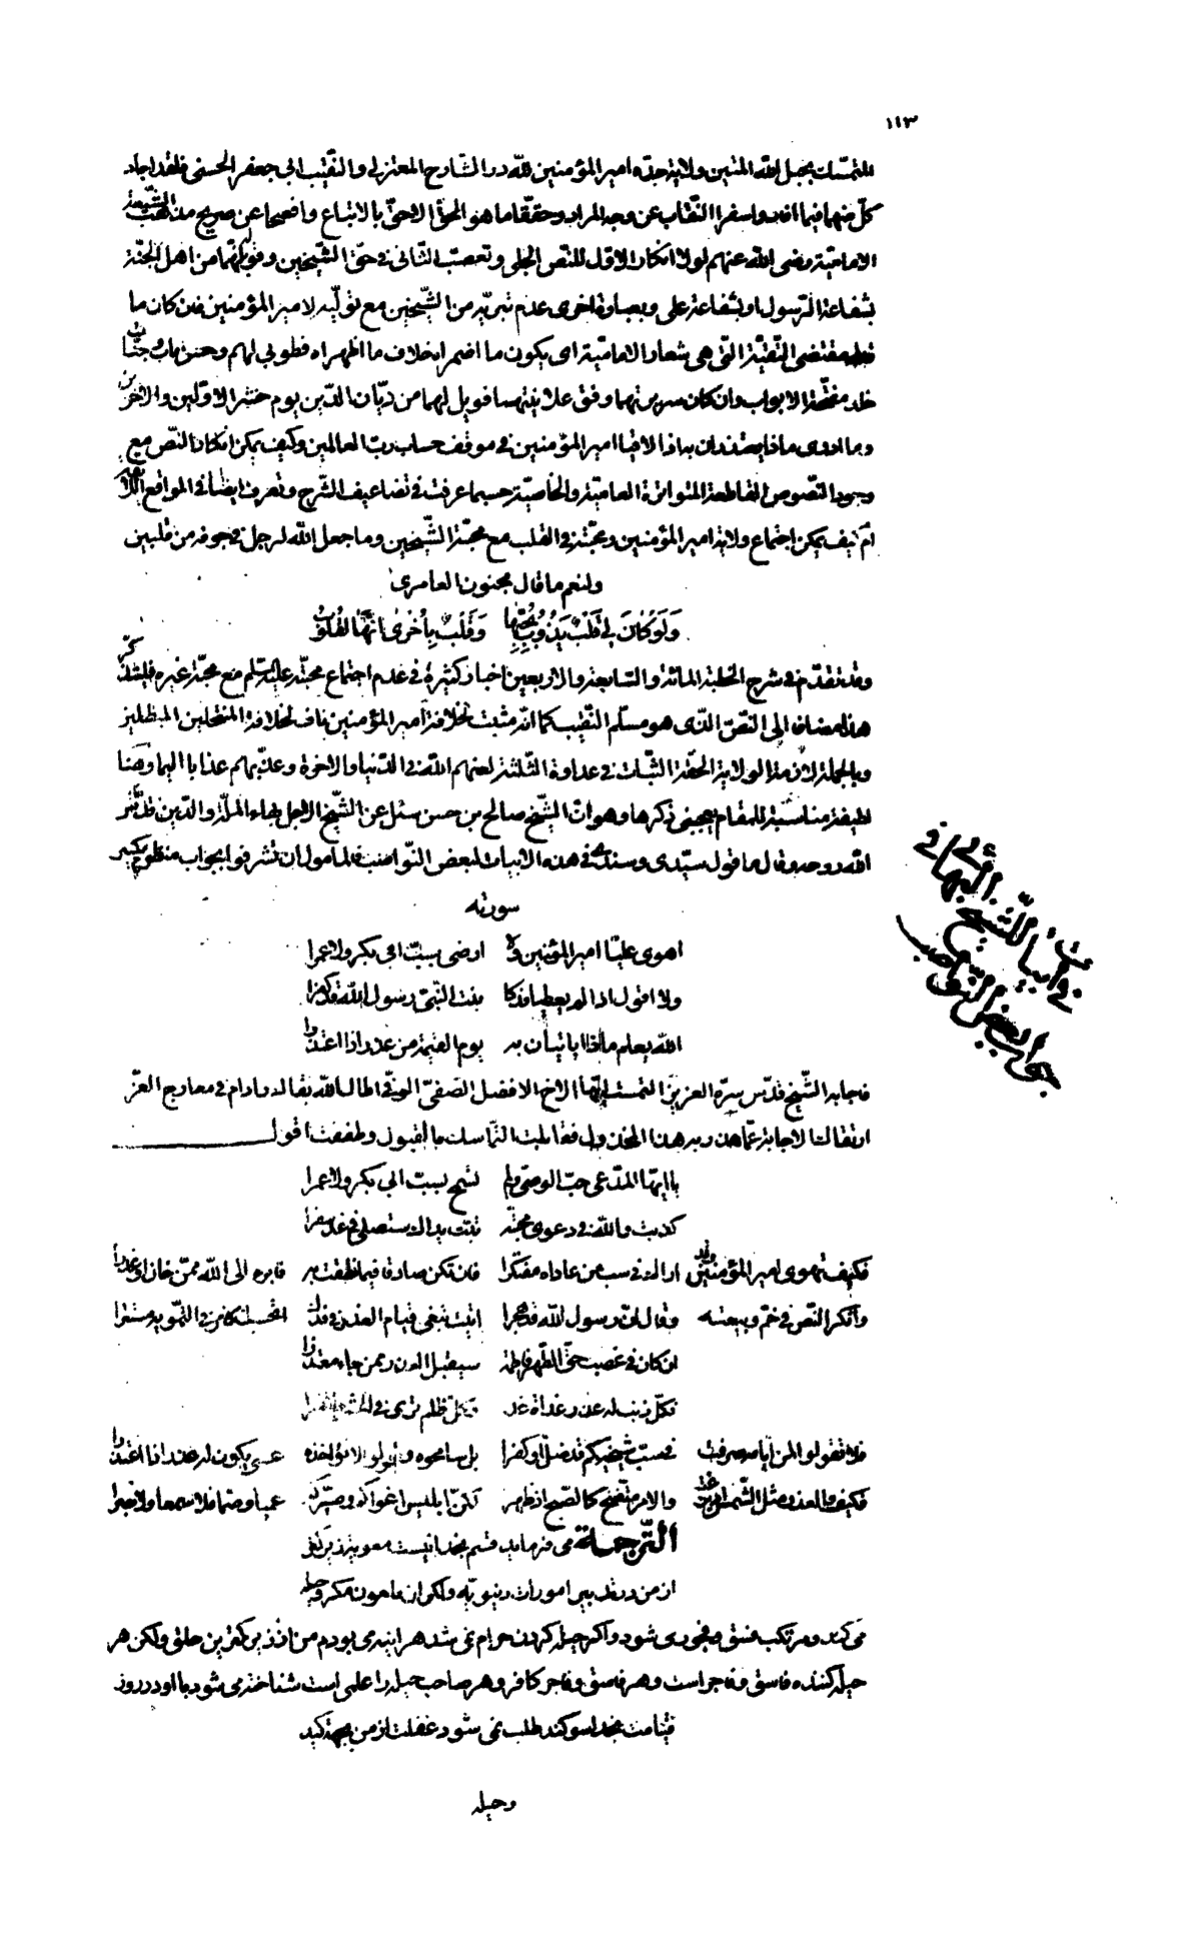 ١١٣
للتمسّك بحبل الله المتين وولاية جدّه امير المؤمنين فللّه درّ الشارح المعتزلي والنّقيب ابي جعفر الحسني فلقد اجاد
كلّ منهما فيما افاد واسفرا النّقاب عن وجه المراد وحقّقا ما هو الحقّ الاحقّ بالاتباع وافصحا عن صريح مذهب الشّيعة
الاماميّة رضي الله عنهم لولا انكار الاوّل للنصّ الجلي وتعصّب الثّاني في حقّ الشّيخين وقوله بانّهما من اهل الجنّة
بشفاعة الرّسول او بشفاعة علي وبعبارة اخرى عدم تبرّيه من الشّيخين مع تولّيه لامير المؤمنين فان كان ما
مقتضى التّقيّة الّتي هي شعار الاماميّة اي يكون ما اضمراه خلاف ما اظهراه فطوبى لهم وحسن ماب وجنّات
خلد مفتّحة الابواب وان كان سريرتهما وفق علانيتهما فويل لهما من ديّان الدّين يوم حشر الاوّلين والآخرين
وما ادرى ماذا يعتذران به اذا لاقيا امير المؤمنين في موقف حساب ربّ العالمين وكيف يمكن انكار النّص مع
وجود النّصوص القاطعة المتواترة العاميّة والخاصيّة حسبما عرفت في تضاعيف الشّرح وتعرف ايضا في المواقع اللائقة
ام كيف يمكن اجتماع ولاية امير المؤمنين ومحبّته في القلب مع محبّة الشّيخين وما جعل الله لرجل في جوفه من قلبين
ولنعم ما قال مجنون العامرى
وَلَوْ كانَ لي قَلْبٌ يَذُوبُ بِحُبِّها وَقَلْبٌ بِاُخْرى اِنَّهَا لَقُلُوبُ
وقد تقدّم في شرح الخطبة المائة والسّابعة والاربعين اخبار كثيرة في عدم اجتماع محبّته عليه السّلم مع محبّة غيره فليتذكّر
هذا مضافا الى النصّ الّذى هو مسلّم النّقيب كما انّه مثبت لخلافة امير المؤمنين ناف لخلافة المنتحلين المبطلين
وبالجملة لازمة الولاية الحقّة الثّبات في عداوة الثّلثة لعنهم الله في الدّنيا والاخرة وعذّبهم عذابا اليما وههنا
لطيفة مناسبة للمقام يعجبني ذكرها وهو انّ الشّيخ صالح بن حسن سئل عن الشّيخ الاجل بهاء الملّة والدّين طيّب
الله روحه وقال ما قول سيّدى وسندى في هذه الابيات لبعض النّواصب فالمأمول ان تشرفوا بجواب منظوم يكسر
سورته
اهوى عليّا امير المؤمنين ولا ارضى بسبّ ابي بكر ولا عمرا
ولا اقول اذا لم يعطيا فدكا بنت النّبيّ رسول الله قد كفرا
الله يعلم ماذا يأتيان به يوم القيمة من عذر اذا اعتذرا
فاجابه الشّيخ قدّس سرّه العزيز التمست ايّها الاخ الافضل الصّفيّ الوفيّ اطال الله بقاك وادام في معارج العزّ
ارتقاك الاجابة عمّا هذر به هذا المخذول فقابلت التماسك بالقبول وطفقت اقول
يا ايّها المدّعي حبّ الوصيّ ولم تسمح بسبّ ابي بكر ولا عمرا
كذبت والله في دعوى محبّته تبّت يداك ستصلى في غد سقرا
فكيف تهوى امير المؤمنين وقد اراك في سبّ من عاداه مفتكرا فان تكن صادقا فيما نطقت به فابرء الى الله ممّن خان او غدرا
وانكر النّص في خمّ وبيعته وقال انّ رسول الله قد هجرا اتيت تبغي قيام العذر في فدك اتحسب الامر في التّمويه مستترا
ان كان في غصب حقّ الطّهر فاطمة سيقبل العذر ممّن جاء معتذرا
فكلّ ذنب له عذر غداة غد وكلّ ظلم ترى في الحشر مغتفرا
فلا تقولوا لمن ايّامه صرفت في سبّ شيخيكم قد ضلّ او كفرا بل سامحوه وقولوا لا نؤاخذه عسى يكون له عذر اذا اعتذرا
فكيف والعذر مثل الشّمس اذ بزغت والامر متّضح كالصّبح اذ ظهرا لكنّ ابليس اغواكم وصيّركم عميا وصمّا فلا سمعا ولا بصرا
التّرجمة مى فرمايد قسم بخدا نيست معويه زيرك تر
از من در تدبير امورات دنيويّه ولكن او مكر وحيله
مى كند ومرتكب فسق وفجور مى شود واگر حيله كردن حرام نمى شد هر اينه مى بودم من از زيرك ترين خلق ولكن هر
حيله كننده فاسق وفاجر است وهر فاسق وفاجر كافر وهر صاحب حيله را علمى است شناخته مى شود با او در روز
قيامت بخدا سوگند طلب نمى شود غفلت از من بجهة كيد
وحيله
في ابيات للشّيخ البهائى في
جواب بعض النّواصب